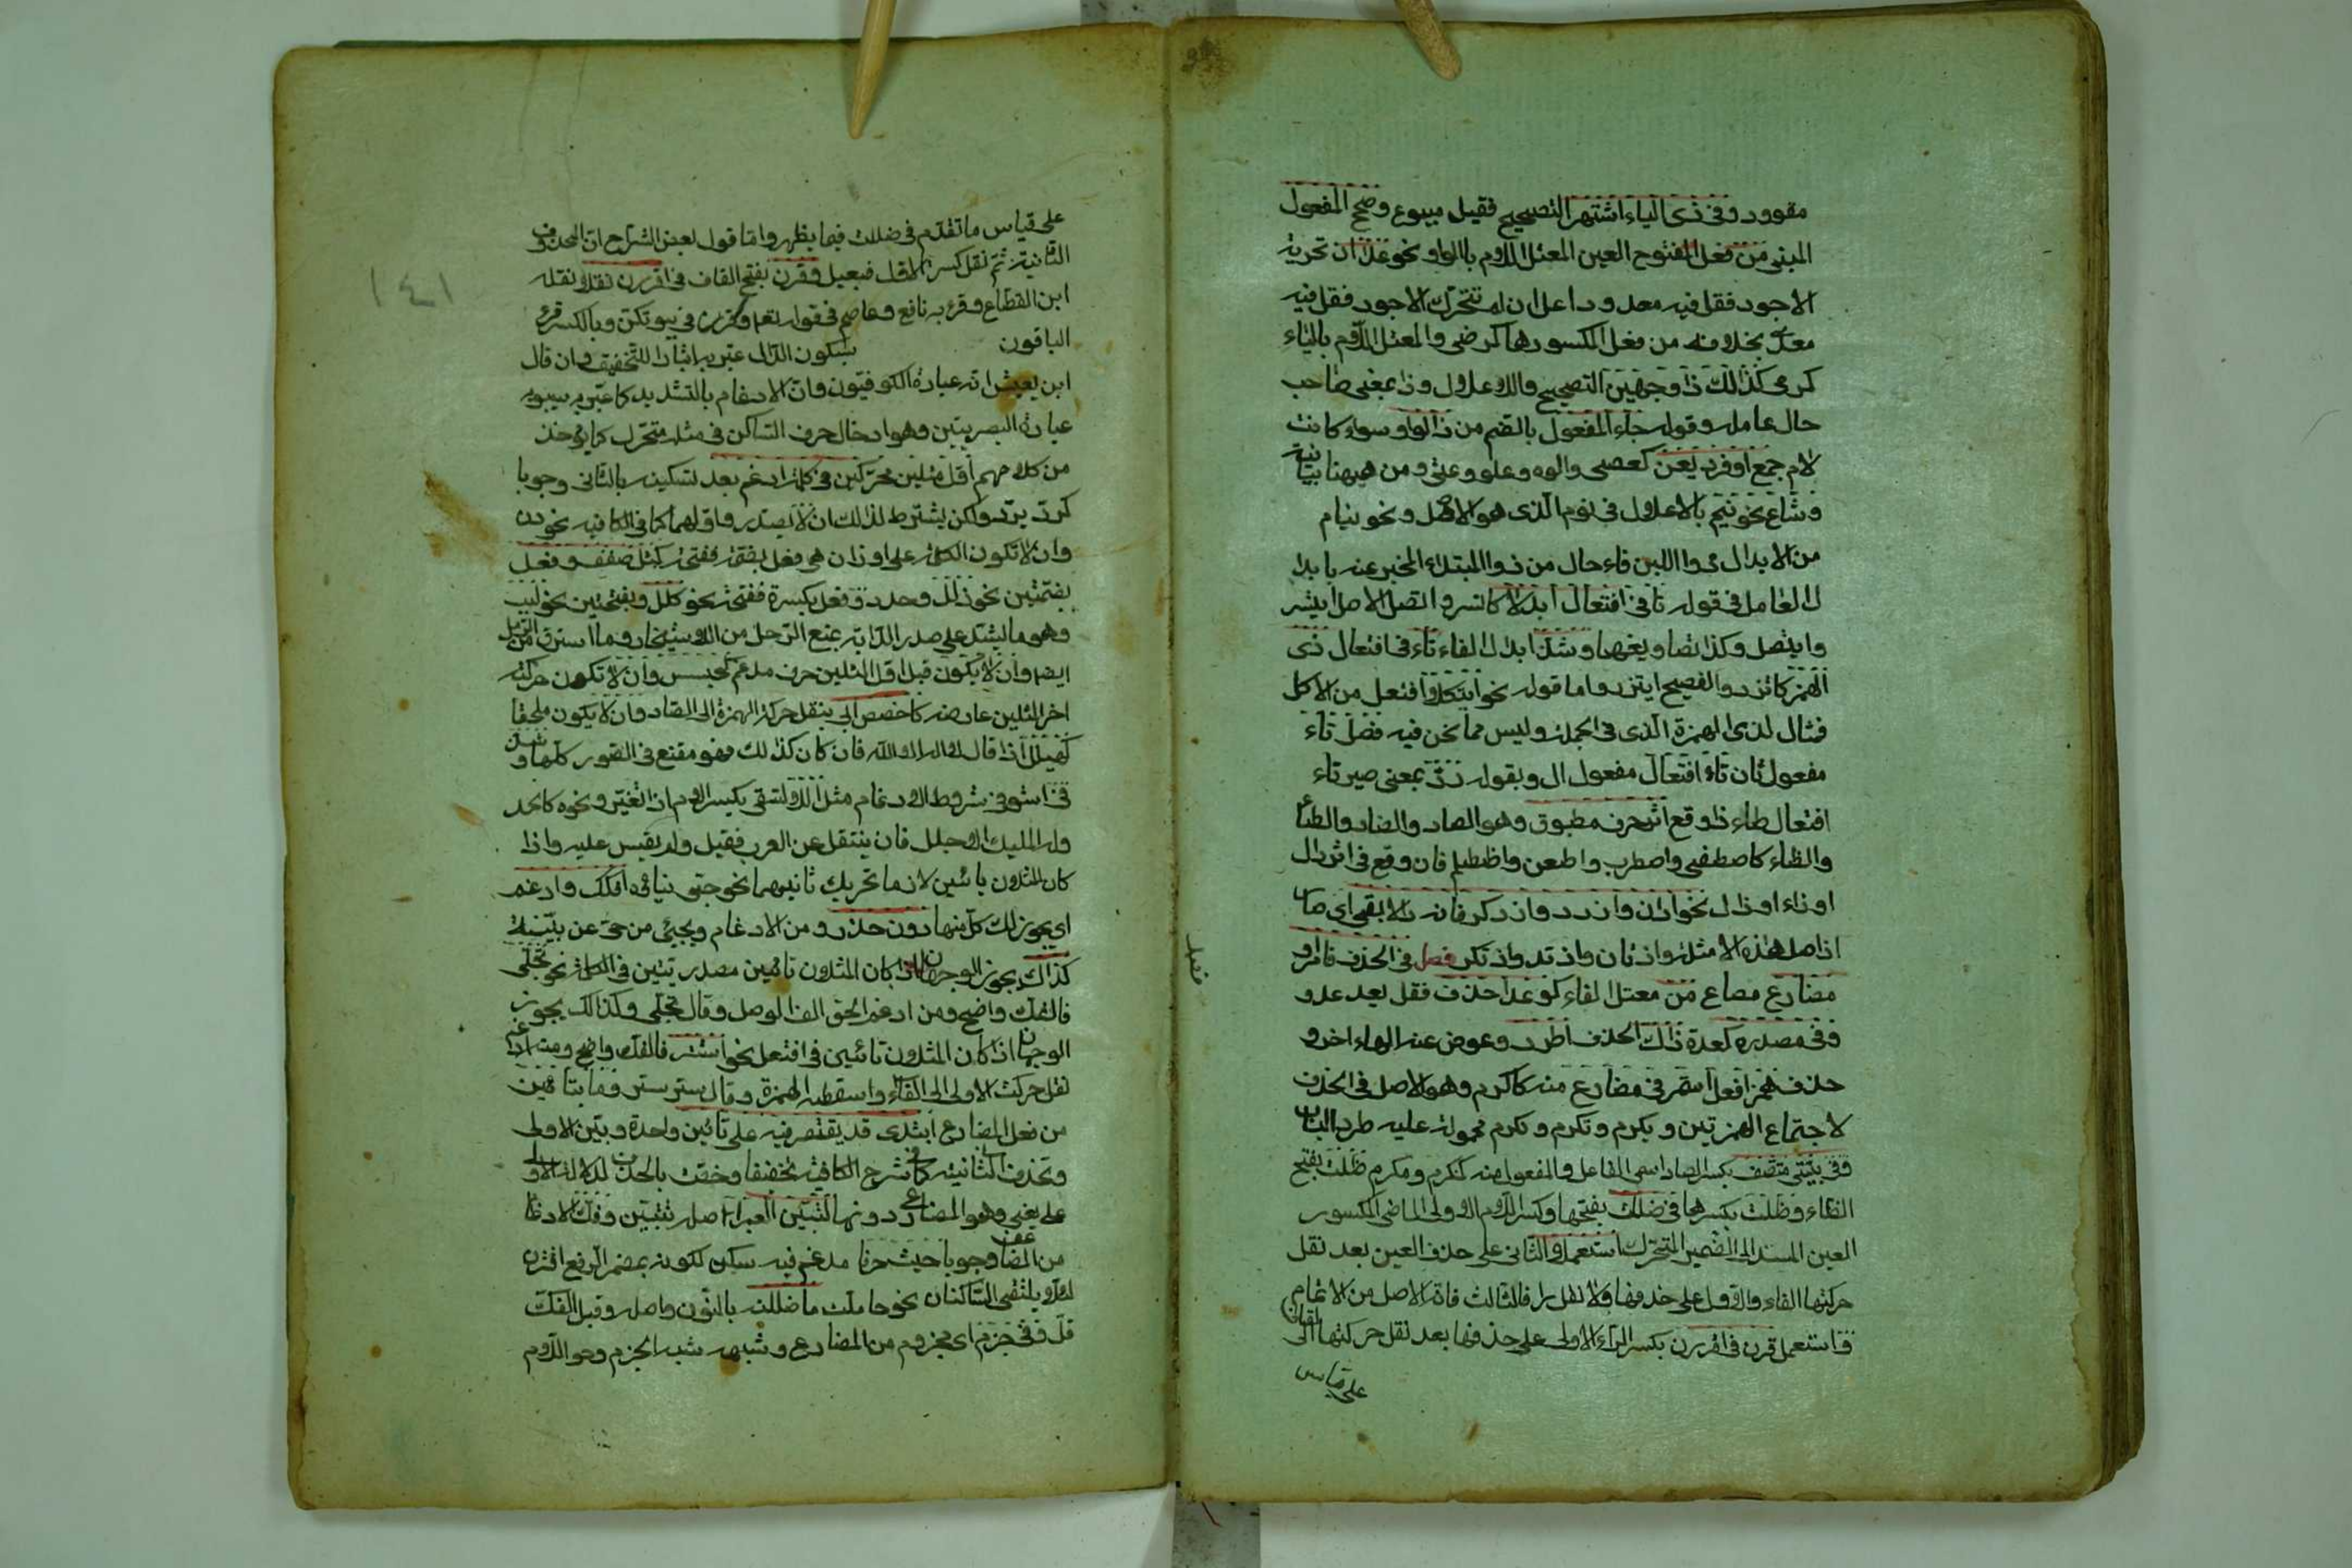 مقوود وفى ذى الياء اشتهر التصحيح فقيل مبيوع وصحح المفعول
المبنى من فعل المفتوح العين المعتل اللام بالواو نحو عدا ان تحرية
الاجود فقل فيه معدو واعلل ان لم تتحر الاجود فقل فيه
معدى بخلافه من فعل المكسورها كرضى والمعتل اللام بالياء
كرمى كذلك ذا وجهين التصحيح والاعلال وذا بمعنى صاحب
حال عامله قوله جاء المفعول بالضم من ذى الواو سواء كانت
لام جمع او فرد يعن كعصى وابوه وعلو وعتى ومن هيهنا بيانية
وشاع نحو نيم بالاعلال فى نوم الذى هو الاصل ونحو نيام
من الابدال ذو اللين فاء حال من ذو المبتداء المخبر عنه بابدا
ل العامل فى قوله تا فى افتعال ابدلا كاتسر واتصل الاصل ايتسر
وايتصل وكذا تصاريفهما وشذ ابدال الفاء تاء فى افتعال ذى
الهمز كاتزر والفصيح ايتزر واما قوله نحو ايتكلا افتعل من الاكل
فمثال لذى الهمزة الذى فى الجملة وليس مما نحن فيه فصل تاء
مفعول ثان تاء افتعال مفعول ال وبقوله رد بمعنى صير تاء
افتعال طاء اذ وقع اثر حرف مطبق وهو الصاد والضاد والطاء
والظاء كاصطفى واضطرب واطعن واظطلم فان وقع فى اثر دال
او زاء او ذال نحو ادان وازدد وادكر فانه دالا بقى اى صار
اذ اصل هذه الامثلة وادتان وازتد واذتكر فصل فى الحذف فا امر و
مضارع مصاغ من معتل الفاء كوعد احذف فقل يعد عد و
وفى مصدره كعدة ذاك الحذف اطرد وعوض عنه الهاء اخر و
حذف همز افعل استمر فى مضارع منه كاكرم وهو الاصل فى الحذف
لاجتماع الهمزتين ويكرم وتكرم ونكرم محمولة عليه طرد الباب
وفى بنيتى متصف بكسر الصاد اسمى الفاعل والمفعول منه كمكرم ومكرم ظلت بفتح
الظاء وظلت بكسرها فى ظللت بفتحها وكسر اللام الاولى الماضى المكسور
العين المسند الى الضمير المتحرك استعملا والثانى على حذف العين بعد نقل
حركتها الفاء والاول على حذفها ولا نقل والثالث فانه الاصل من الاتمام
واستعمل قرن فى اقررن بكسر الراء الاولى على حذفها بعد نقل حركتها الى القاف
على قياس
على قياس ما تقدم فى ظللت فيما يظهر واما قول بعض الشراح ان المحذوف
الثانية ثم نقل كسر الاول فبعيد وقرن بفتح القاف فى اقررن نقلا نقله
ابن القطاع وقرء به نافع وعاصم فى قوله تعالى وقرن فى بيوتكن وبالكسر قرء
الباقون بسكون الدال عبر به ايثارا للتخفيف وان قال
ابن يعيش انه عبارة الكوفيون وان الادغام بالتشديد كما عبر به سيبويه
عبارة البصريين وهو ادخال حرف الساكن فى مثله متحرك كما يؤخذ
من كلامهم اول مثلين محركين فى كلمة ادغم بعد تسكينه بالثانى وجوبا
كرد يرد ولكن يشترط لذلك ان لا يصدر اولهما كما فى الكافيه نحو ددن
وان لا تكون الكلمة على اوزان هى فعل بضمة ففتحة كمثل صفف وفعل
بضمتين نحو ذلل وجدد وفعل بكسرة ففتحة نحو كلل وبفتحتين نحو لبب
وهو ما يشد على صدر الدابة يمنع الرحل من الاستيخار وما استرق من الرمل
ايضا وان لا يكون قبل اول المثلين حرف مدغم كجسس وان لا تكون حركة
اخر المثلين عارضه كاخصص ابى بنقل حركة الهمزة الى الصاد وان لا يكون ملحقا
كهيلل اذا قال لا اله الا الله فان كان كذلك فهو ممتنع فى الصور كلها وشذ
فى استوفى شروط الادغام مثل الل السقى بكسر اللام اذا تغير ونحوه كالحد
وله المليك الاجلل فان ينتقل عن العرب فقيل ولم يقيس عليه واذا
كان المثلان يائين لازما تحريك ثانيهما نحو حيى نيائه افكك وادغم
اى يجوز لك كل منهما دون حذر ومن الادغام ويحيى من حى عن بينة
كذاك يجوز الوجهان اذا كان المثلان تائين مصدرتين فى الكلمة نحو تتجلى
فالفك واضح ومن ادغم الحق الف الوصل وقال اتجلى وكذلك يجوز
الوجهان اذا كان المثلان تائين فى افتعل نحو استتر فالفك واضح ومتى ادغم
نقل حركت الاولى الى الفاء واسقط الهمزة وقال ستر يستر وما بتائين
من فعل المضارع ابتدى قد يقتصر فيه على تائين واحدة وبين الاولى
وتحذف الثانيه كما فى شرح الكافيه تخفيفا وخصت بالحذف لدلالة الاولى
على معنى وهو المضارع دونها كتبين العبر اصله تتبين وفك الادغا
من المضاعف وجوبا حيث حرف مدغم فيه سكن لكونه بمضمر الرفع اقترن
لئلا يلتقى الساكنان نحو حللت ما حللته بالنون واصله وقبل الفك
قل وفى جزم اى مجزوم من المضارع وشبهه شبه الجزم وهو اللام
١٤١